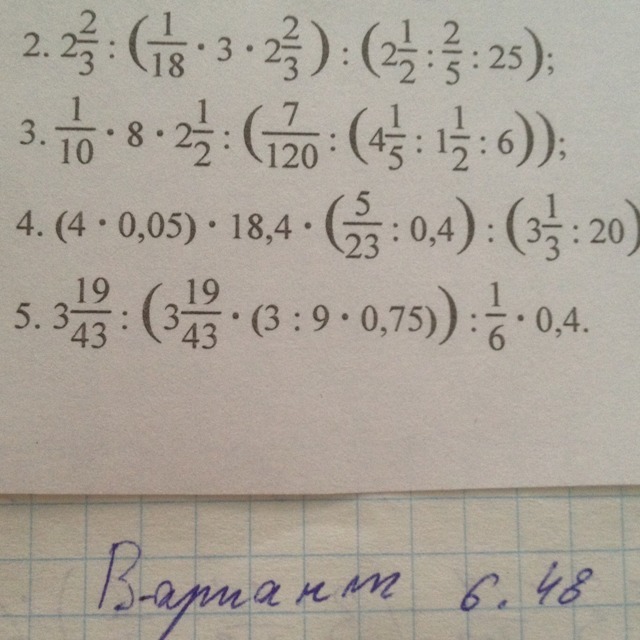 2. 2 2/3 : (1/18 · 3 · 2 2/3) : (2 1/2 : 2/5 : 25);
3. 1/10 · 8 · 2 1/2 : (7/120 : (4 1/5 : 1 1/2 : 6));
4. (4 · 0,05) · 18,4 · (5/23 : 0,4) : (3 1/3 : 20)
5. 3 19/43 : (3 19/43 · (3 : 9 · 0,75)) : 1/6 · 0,4.
Вариант 6.48